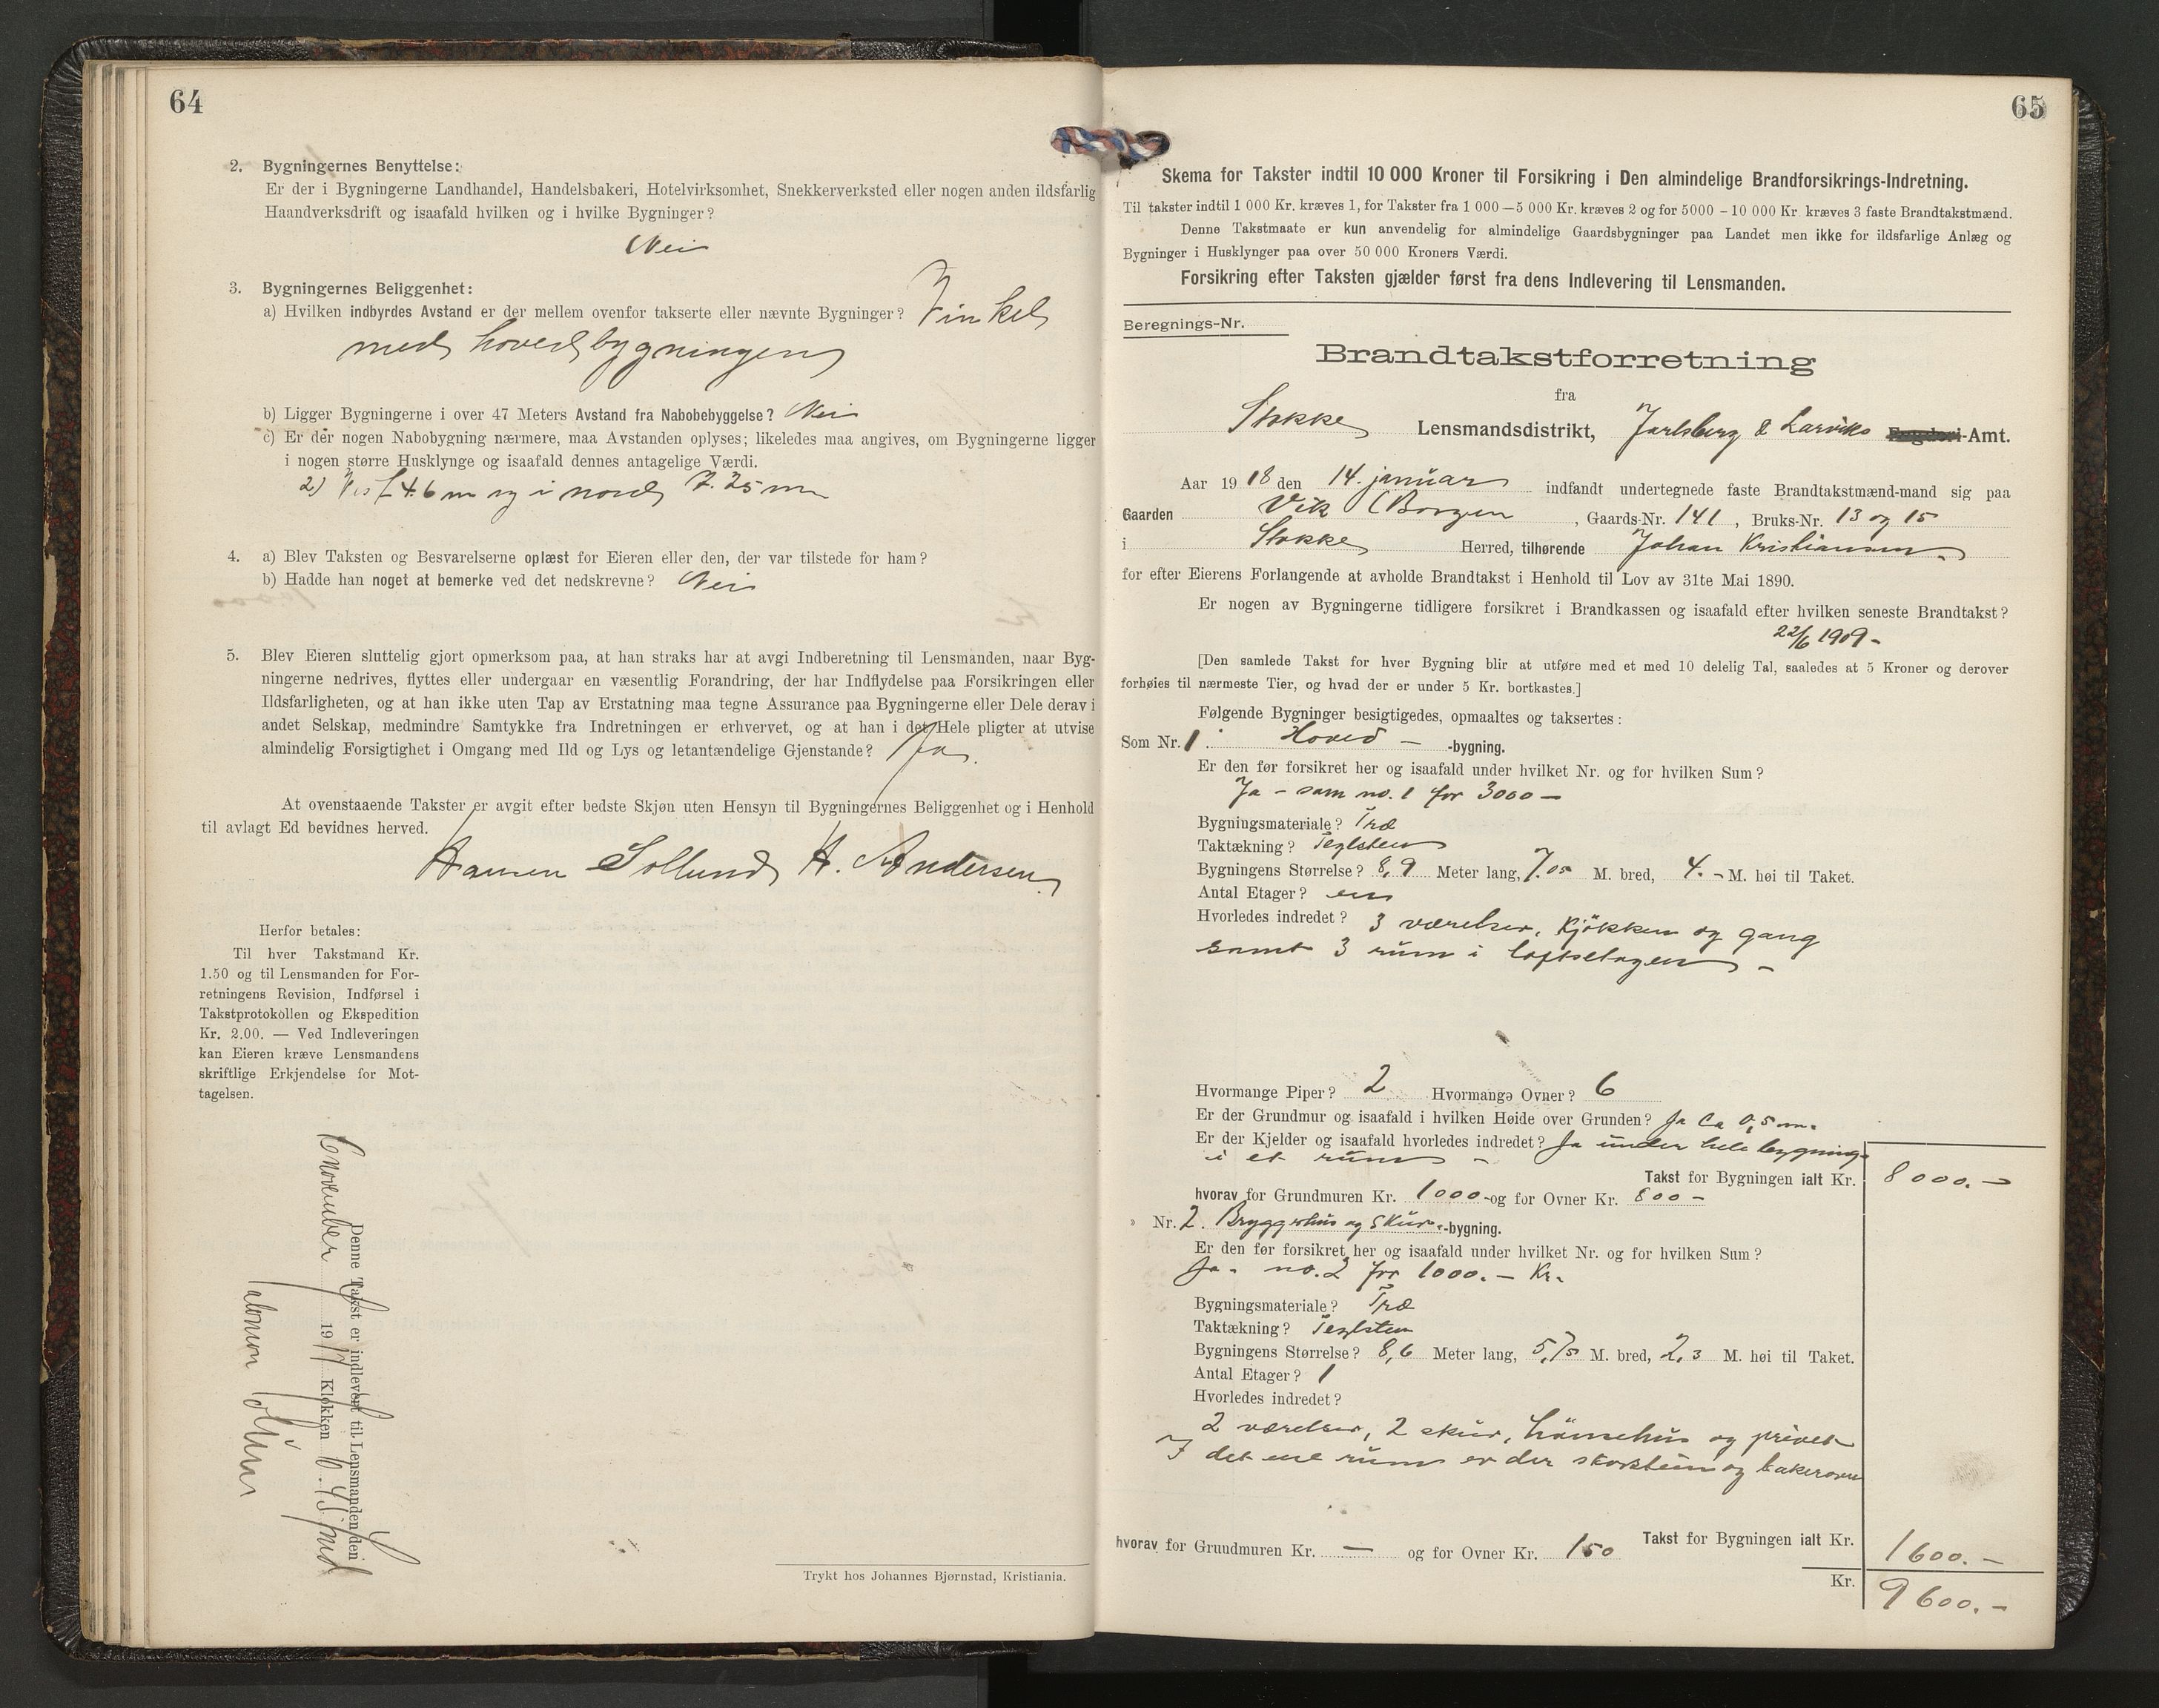 64
2. Bygningernes Benyttelse:
Er der i Bygningerne Landhandel, Handelsbakeri, Hotelvirksomhet, Snekkerverksted eller nogen anden ildsfarlig
Haandverksdrift og isaafald hvilken og i hvilke Bygninger?
Nei
3. Bygningernes Beliggenhet:
a) Hvilken indbyrdes Avstand er der mellem ovenfor takserte eller nævnte Bygninger? Vinkel
med hovedbygningen
b) Ligger Bygningerne i over 47 Meters Avstand fra Nabobebyggelse? Nei
c) Er der nogen Nabobygning nærmere, maa Avstanden oplyses; likeledes maa angives, om Bygningerne ligger
i nogen større Husklynge og isaafald dennes antagelige Værdi.
2) Vest 4.6 m og i nord 7.25 m
4. a) Blev Taksten og Besvarelserne oplæst for Eieren eller den, der var tilstede for ham?
b) Hadde han noget at bemerke ved det nedskrevne? Nei
5. Blev Eieren sluttelig gjort opmerksom paa, at han straks har at avgi Indberetning til Lensmanden, naar Byg-
ningerne nedrives, flyttes eller undergaar en væsentlig Forandring, der har Indflydelse paa Forsikringen eller
Ildsfarligheten, og at han ikke uten Tap av Erstatning maa tegne Assurance paa Bygningerne eller Dele derav i
andet Selskap, medmindre Samtykke fra Indretningen er erhvervet, og at han i det Hele pligter at utvise
almindelig Forsigtighet i Omgang med Ild og Lys og letantændelige Gjenstande? Ja.
At ovenstaaende Takster er avgit efter bedste Skjøn uten Hensyn til Bygningernes Beliggenhet og i Henhold
til avlagt Ed bevidnes herved.
Hansen Sollund A. Andersen
Herfor betales:
Til hver Takstmand Kr.
1.50 og til Lensmanden for For-
retningens Revision, Indførsel i
Takstprotokollen og Ekspedition
Kr. 2.00. — Ved Indleveringen
kan Eieren kræve Lensmandens
skriftlige Erkjendelse for Mot-
tagelsen.
Denne Takst er indlevert til Lensmanden den
6 november 1917 Klokken 6.45 md
Trykt hos Johannes Bjørnstad, Kristiania.
65
Skema for Takster indtil 10 000 Kroner til Forsikring i Den almindelige Brandforsikrings-Indretning.
Til takster indtil 1 000 Kr. kræves 1, for Takster fra 1 000—5 000 Kr. kræves 2 og for 5000 – 10 000 Kr kræves 3 faste Brandtakstmænd.
Denne Takstmaate er kun anvendelig for almindelige Gaardsbygninger paa Landet men ikke for ildsfarlige Anlæg og
Bygninger i Husklynger paa over 50 000 Kroners Værdi.
Forsikring efter Taksten gjælder først fra dens Indlevering til Lensmanden.
Beregnings-Nr.
Brandtakstforretning
fra
Stokke Lensmandsdistrikt, Jarlsberg & Larviks Fogderi-Amt.
Aar 1918 den 14. januar indfandt undertegnede faste Brandtakstmænd-mand sig paa
Gaarden Vik (Borgen , Gaards-Nr. 141 , Bruks-Nr. 13 og 15
i Stokke Herred, tilhørende Johan Kristiansen
for efter Eierens Forlangende at avholde Brandtakst i Henhold til Lov av 31te Mai 1890.
Er nogen av Bygningerne tidligere forsikret i Brandkassen og isaafald efter hvilken seneste Brandtakst?
22/6 1909 –
[Den samlede Takst for hver Bygning blir at utføre med et med 10 delelig Tal, saaledes at 5 Kroner og derover
forhøies til nærmeste Tier, og hvad der er under 5 Kr. bortkastes.]
Følgende Bygninger besigtigedes, opmaaltes og taksertes:
Som Nr. 1. Hoved – -bygning.
Er den før forsikret her og isaafald under hvilket Nr. og for hvilken Sum?
Ja – som no. 1 for 3000 –
Bygningsmateriale? Træ
Taktækning? Teglsten
Bygningens Størrelse? 8,9 Meter lang, 7.05 M. bred, 4. – M. høi til Taket.
Antal Etager? en
Hvorledes indredet? 3 værelser, Kjökken og gang
samt 3 rum i loftsetagen –
Hvormange Piper? 2 Hvormange Ovner? 6
Er der Grundmur og isaafald i hvilken Høide over Grunden? Ja ca 0,5 m.
Er der Kjelder og isaafald hvorledes indredet? Ja under hele bygning.
i et rum –
Takst for Bygningen ialt Kr. 8000. –
hvorav for Grundmuren Kr. 1000 – og for Ovner Kr. 800 –
Nr. 2. Bryggerhus og skur. -bygning.
Er den før forsikret her og isaafald under hvilket Nr. og for hvilken Sum?
Ja. no. 2 for 1000. – Kr.
Bygningsmateriale? Træ
Taktækning? Teglsten
Bygningens Størrelse? 8,6 Meter lang, 5,75 M. bred, 2,3 M. høi til Taket.
Antal Etager? 1
Hvorledes indredet?
2 værelser, 2 skur, hönsehus og privet
I det ene rum er der skorsten og bakerovn
Takst for Bygningen ialt Kr. 1600. –
hvorav for Grundmuren Kr. — og for Ovner Kr. 150
Kr. 9600. –